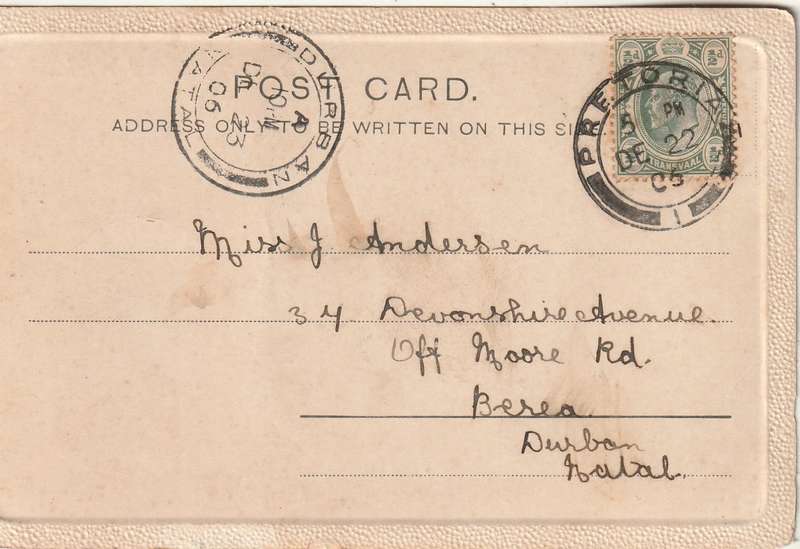 POST CARD.
ADDRESS ONLY TO BE WRITTEN ON THIS SI
DURBAN
NATAL
A
DE 23
06
PRETORIA
5 PM
DE 22
06
1
½d ½d
TRANSVAAL
Miss J Andersen
34 Devonshire Avenue.
Off Moore Rd.
Berea.
Durban
Natal.